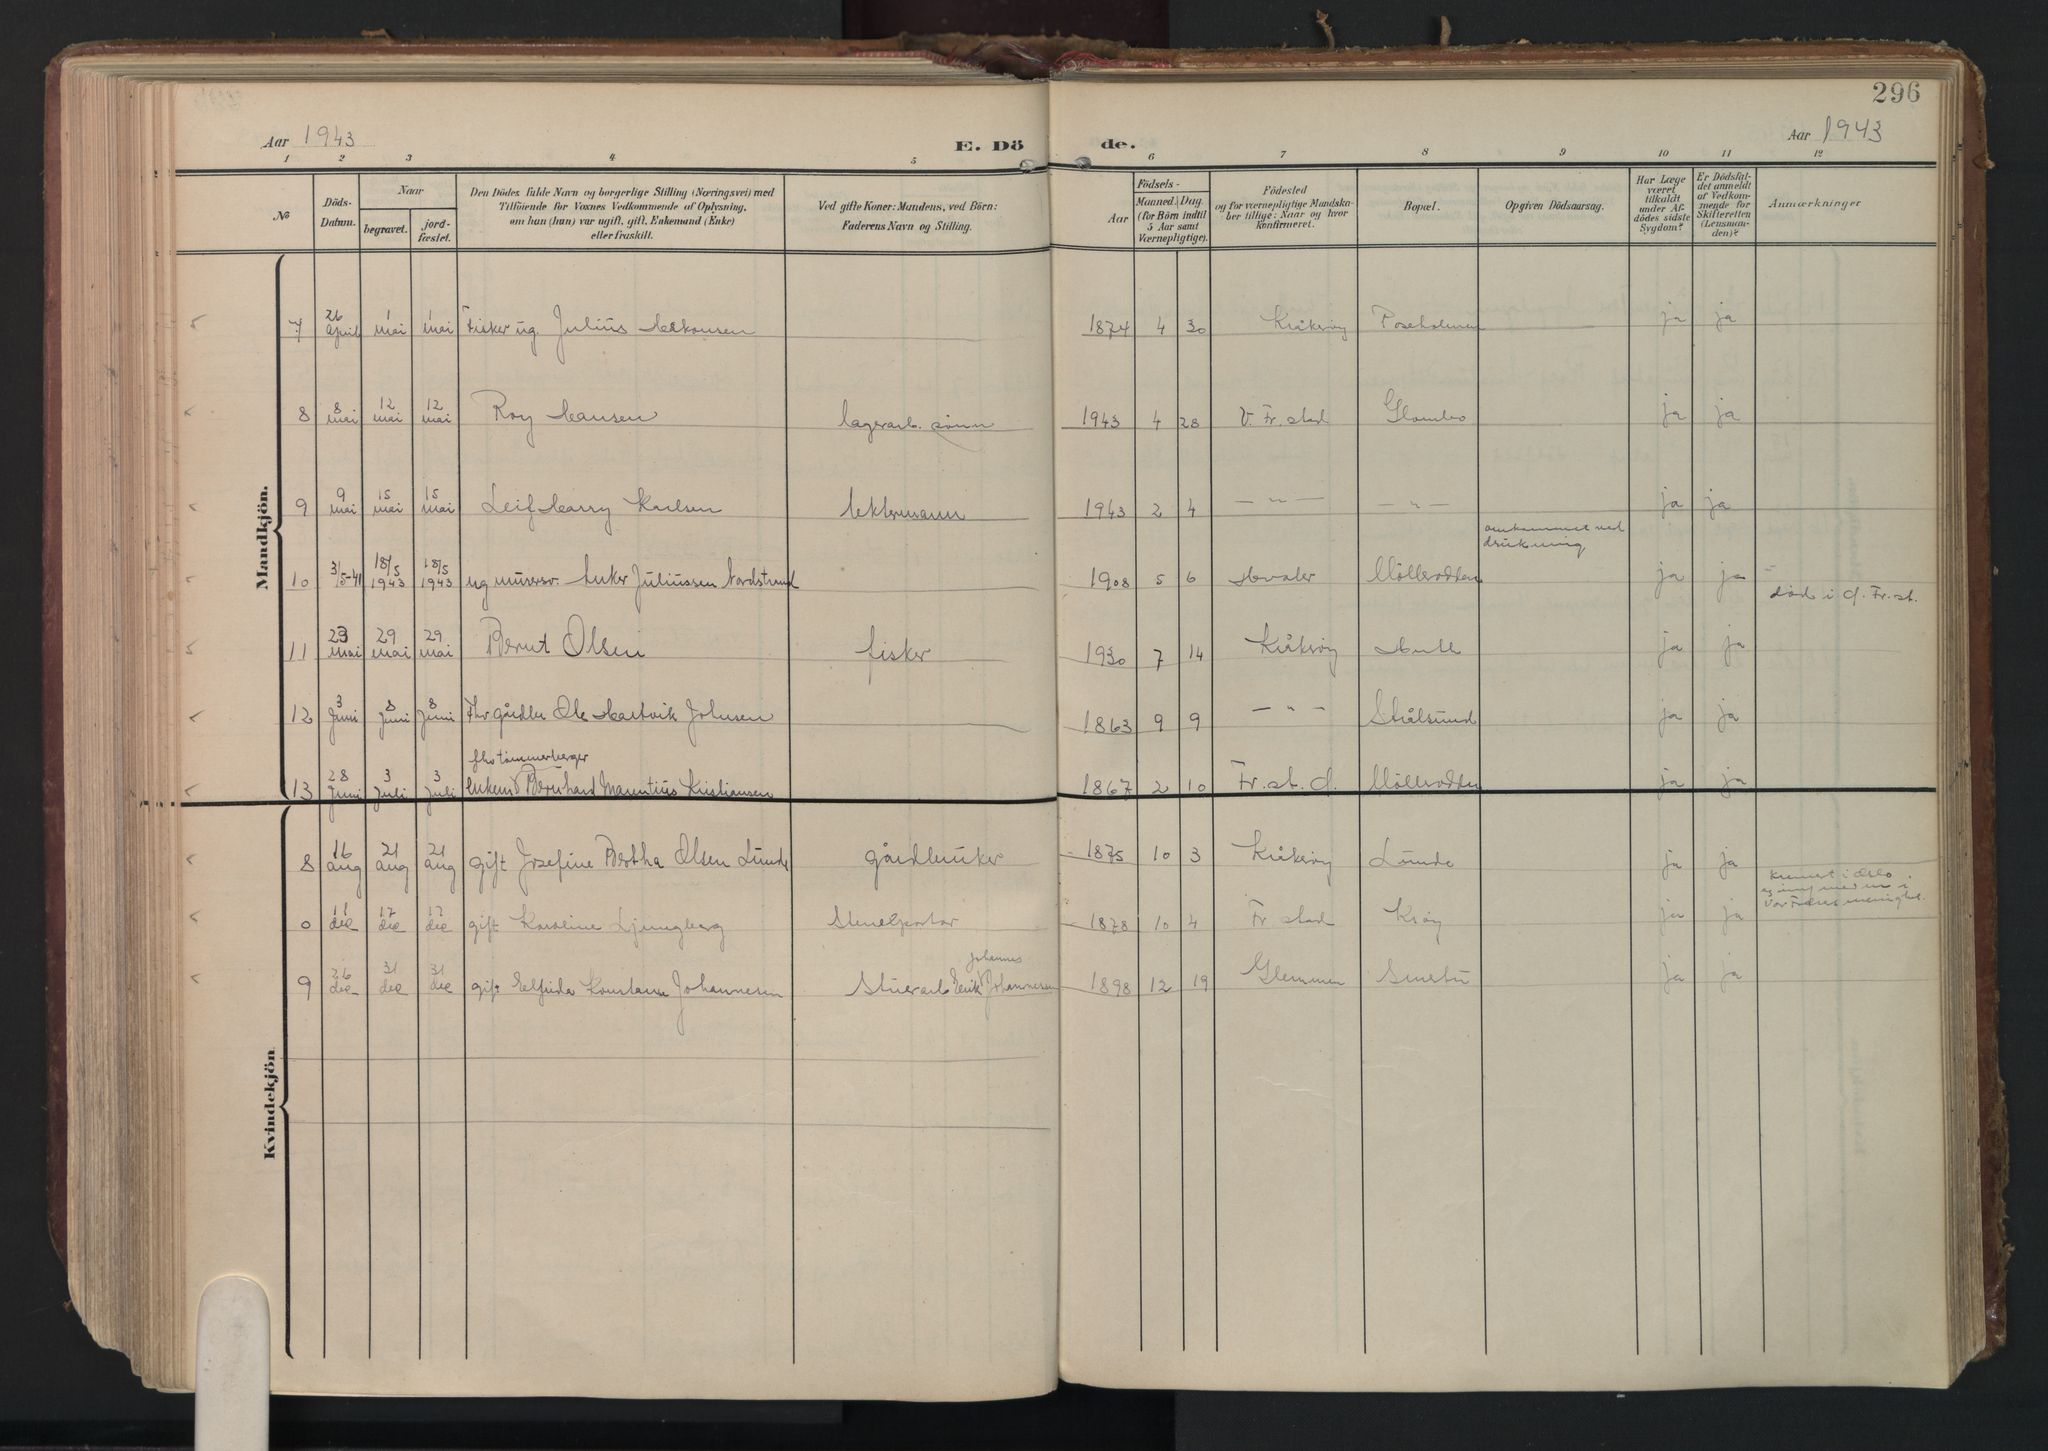 296
Aar 1943 E. Dö de. Aar 1943
1 2 3 4 5 6 7 8 9 10 11 12
№
Döds-Datum.
Naar
begravet.
jord-fæstet.
Den Dödes fulde Navn og borgerlige Stilling (Næringsvei) med
Tilföiende for Voxnes Vedkommende af Oplysning,
om han (hun) var ugift, gift, Enkemand (Enke)
eller fraskilt.
Ved gifte Koner: Mandens, ved Börn:
Faderens Navn og Stilling.
Födsels-
Aar
Maaned. Dag.
(for Börn indtil
5 Aar samt
Værnepligtige).
Födested
og for værnepligtige Mandska-
ber tillige: Naar og hvor
konfirmeret.
Bopæl.
Opgiven Dödsaarsag.
Har Læge
været
tilkaldt
under Af-
dödes sidste
Sygdom?
Er Dödsfal-
det anmeldt
af Vedkom-
mende for
Skifteretten
(Lensman-
den)?
Anmærkninger
Mandkjön.
7 26 april 1 mai 1 mai Fisker ug. Julius Haakonsen 1874 4 30 Kråkerøy Poseholmen ja ja
8 8 mai 12 mai 12 mai Roy Hansen lagerarb. sønn 1943 4 28 V. Fr.stad Glombo ja ja
9 9 mai 15 mai 15 mai Leif Harry Karlsen lektermann 1943 2 4 — „ — — „ — ja ja
omkommet ved
drukning
10 3/5-41 18/5 1943 18/5 1943 ug murersv. Anker Juliussen Nordstrand 1908 5 6 Hvaler Møllerodden ja ja
død i G. Fr.st.
11 23 mai 29 mai 29 mai Bernt Olsen fisker 1930 7 14 Kråkerøy ja ja
12 3 juni 8 juni 8 juni Fhv gårdbr Ole Hartvik Johnsen 1863 9 9 — „ — Stålsund ja ja
fhv tømmerberger
13 28 juni 3 juli 3 juli enkem Bernhard Mauritius Kristiansen 1867 2 10 Fr.st. G. Møllerodden ja ja
Kvindekjön
8 16 aug 21 aug 21 aug gift Josefine Bertha Olsen Lunde gårdbruker 1875 10 3 Kråkerøy Lunde ja ja
Kremert i Oslo.
Vor Frelses menighet.
0 11 des 17 des 17 des gift Karoline Ljungberg Stenexportør 1878 10 4 Fr stad Krøy ja ja
Johannes
9 26 des 31 des 31 des gift Elfrida Konstanse Johannesen Stuerarb Erik Johannesen 1898 12 19 Glemmen Smertu ja ja